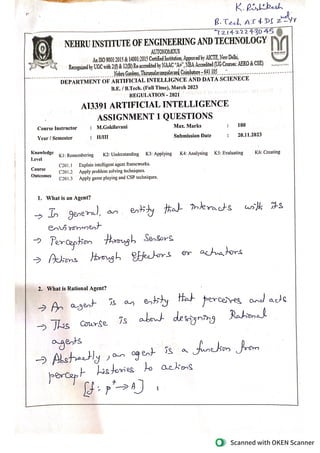 K. Rishikesh
B. Tech AI & DS 2nd Yr
721422243045
NEHRU INSTITUTE OF ENGINEERING AND TECHNOLOGY
AUTONOMOUS
An ISO 9001:2015 & 14001:2015 Certified Institution, Approved by AICTE, New Delhi,
Recognized by UGC with 2(f) & 12(B) Re-accredited by NAAC "A+", NBA Accredited (UG Courses: AERO & CSE)
Nehru Gardens, Thirumalayampalayam, Coimbatore - 641 105
DEPARTMENT OF ARTIFICIAL INTELLIGENCE AND DATA SCIENECE
B.E. / B.Tech. (Full Time), March 2023
REGULATION - 2021
AI3391 ARTIFICIAL INTELLIGENCE
ASSIGNMENT 1 QUESTIONS
Course Instructor : M.Gokilavani Max. Marks : 100
Year / Semester : II/III Submission Date : 20.11.2023
Knowledge Level K1: Remembering K2: Understanding K3: Applying K4: Analysing K5: Evaluating K6: Creating
Course Outcomes C201.1 Explain intelligent agent frameworks.
C201.2 Apply problem solving techniques.
C201.3 Apply game playing and CSP techniques.
1. What is an Agent?
→ In general, an entity that interacts with its
environment
→ Perception through sensors
→ Actions through effectors or actuators
2. What is Rational Agent?
→ An agent is an entity that perceives and acts
→ This course is about designing Rational
agents
→ Abstractly, an agent is a function from
percept histories to actions
[f: p* → A]
Scanned with OKEN Scanner